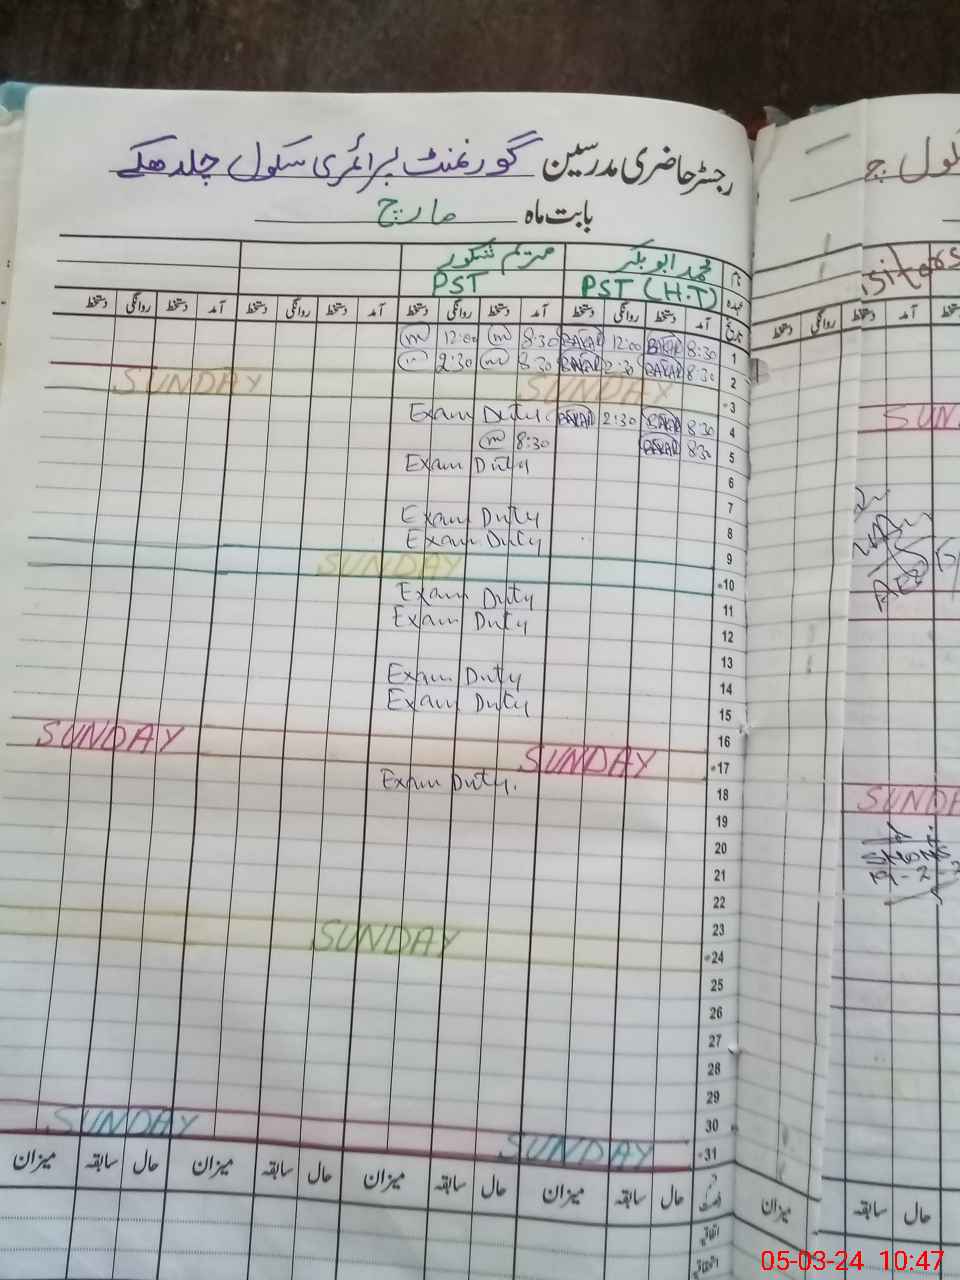 رجسٹر حاضری مدرسین گورنمنٹ پرائمری سکول جلدهکے
بابت ماہ مارچ
نام محمد ابوبکر مریم شکور
عہدہ PST (H.T) PST
تاریخ آمد دستخط روانگی دستخط آمد دستخط روانگی دستخط آمد دستخط روانگی دستخط آمد دستخط روانگی دستخط
1 8:30 BAKAR 12:00 BAKAR 8:30 m 12:00 m
2 8:30 BAKAR 2:30 BAKAR 8:30 m 2:30
3 SUNDAY SUNDAY
4 8:30 BAKAR 2:30 BAKAR Exam Duty.
5 8:30 BAKAR 8:30 m
6 Exam Duty
7
8 Exam Duty
9 Exam Duty
10 SUNDAY
11 Exam Duty
12 Exam Duty
13
14 Exam Duty
15 Exam Duty
16
17 SUNDAY SUNDAY
18 Exam Duty.
19
20
21
22
23
24 SUNDAY
25
26
27
28
29
30
31 SUNDAY SUNDAY
حال سابقہ میزان حال سابقہ میزان حال سابقہ میزان حال سابقہ میزان
سکول
دستخط روانگی دستخط آمد
SUN
AEO
SUNDA
19-2-2
میزان سابقہ حال
05-03-24 10:47